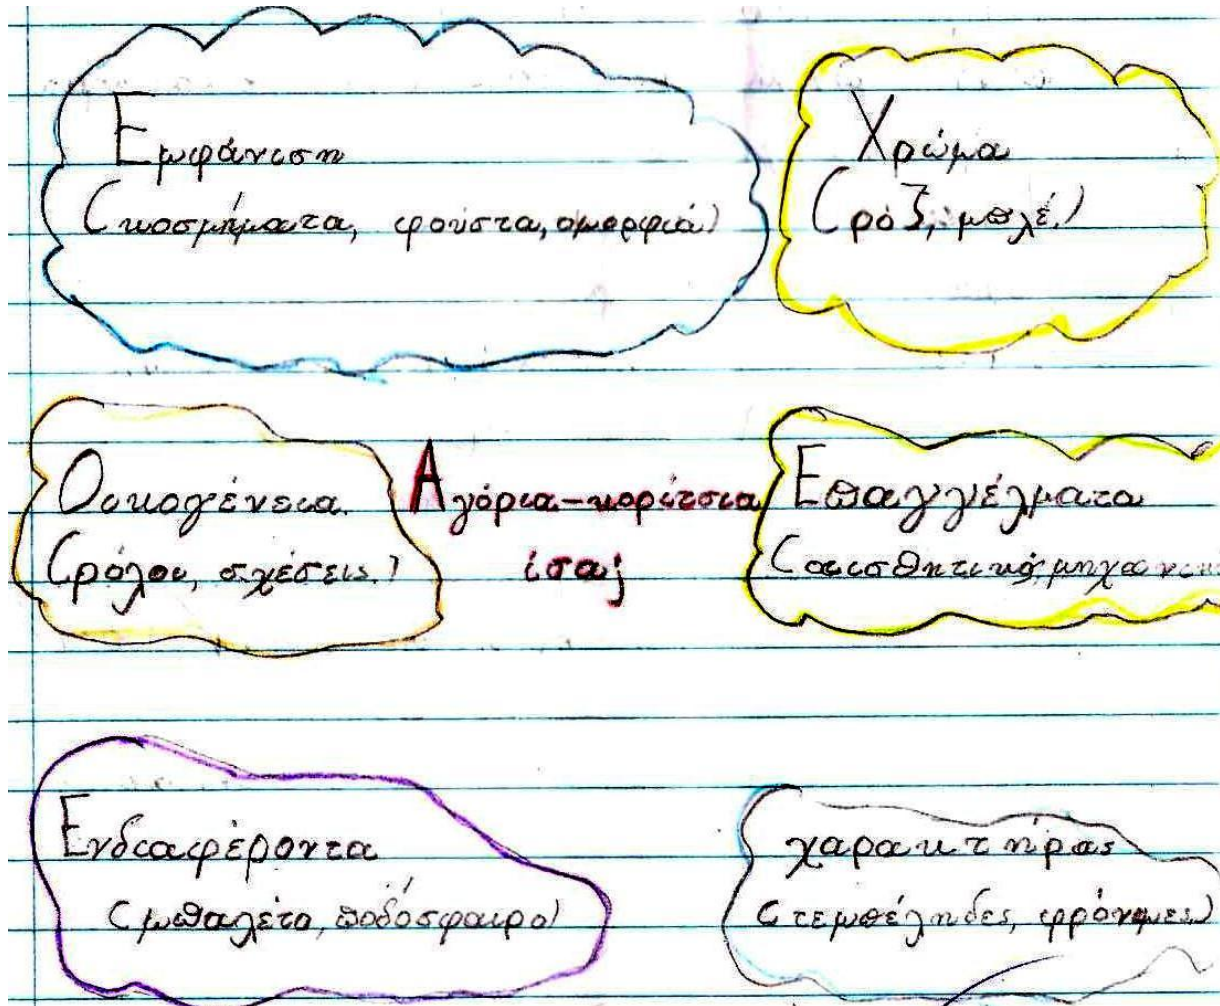 Εμφάνιση
(κοσμήματα, φούστα, ομορφιά)
Χρώμα
(ρόζ, μπλέ.)
Οικογένεια.
(ρόλοι, σχέσεις.)
Αγόρια-κορίτσια
ίσα;
Επαγγέλματα
(αισθητικός, μηχανικ
Ενδιαφέροντα
(μπαλέτο, ποδόσφαιρο)
χαρακτήρας
(τεμπέληδες, φρόνιμες.)